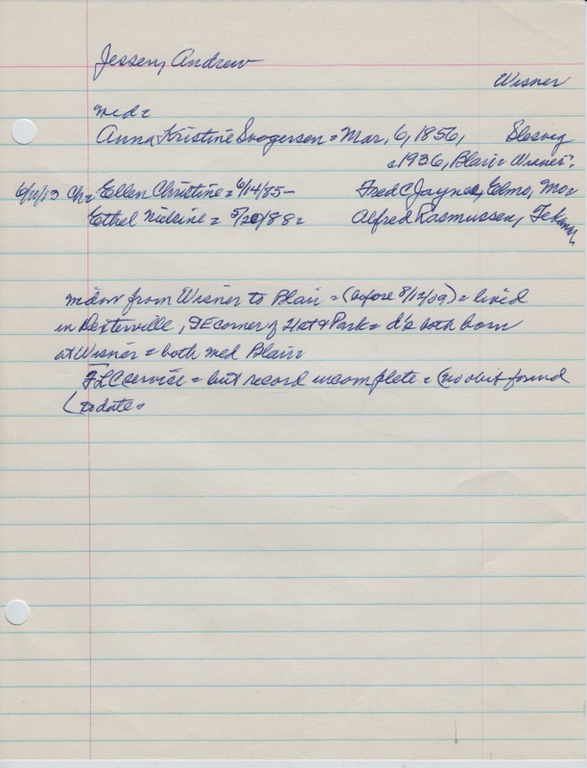 Jessen, Andrew
Wisner
med=
Anna Kristine Svogersen = Mar, 6, 1856, Slesvig
1936, Blair = Wisner
6/11/13 Ch= Ellen Christine = 6/14/85- Fred C Jaynes, Elmo, Mo=
Ethel Nielsine = 5/20/88= Alfred Rasmussen, Tekam,
from Wisner to Blair = (before 8/12/09) = lived
in Dexterville, SE corner of 21st & Park = d's both born
at Wisner = both med Blair=
FLC service = but record incomplete = (no obit found
to date=